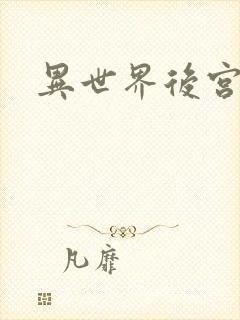 異世界後宮
凡靡